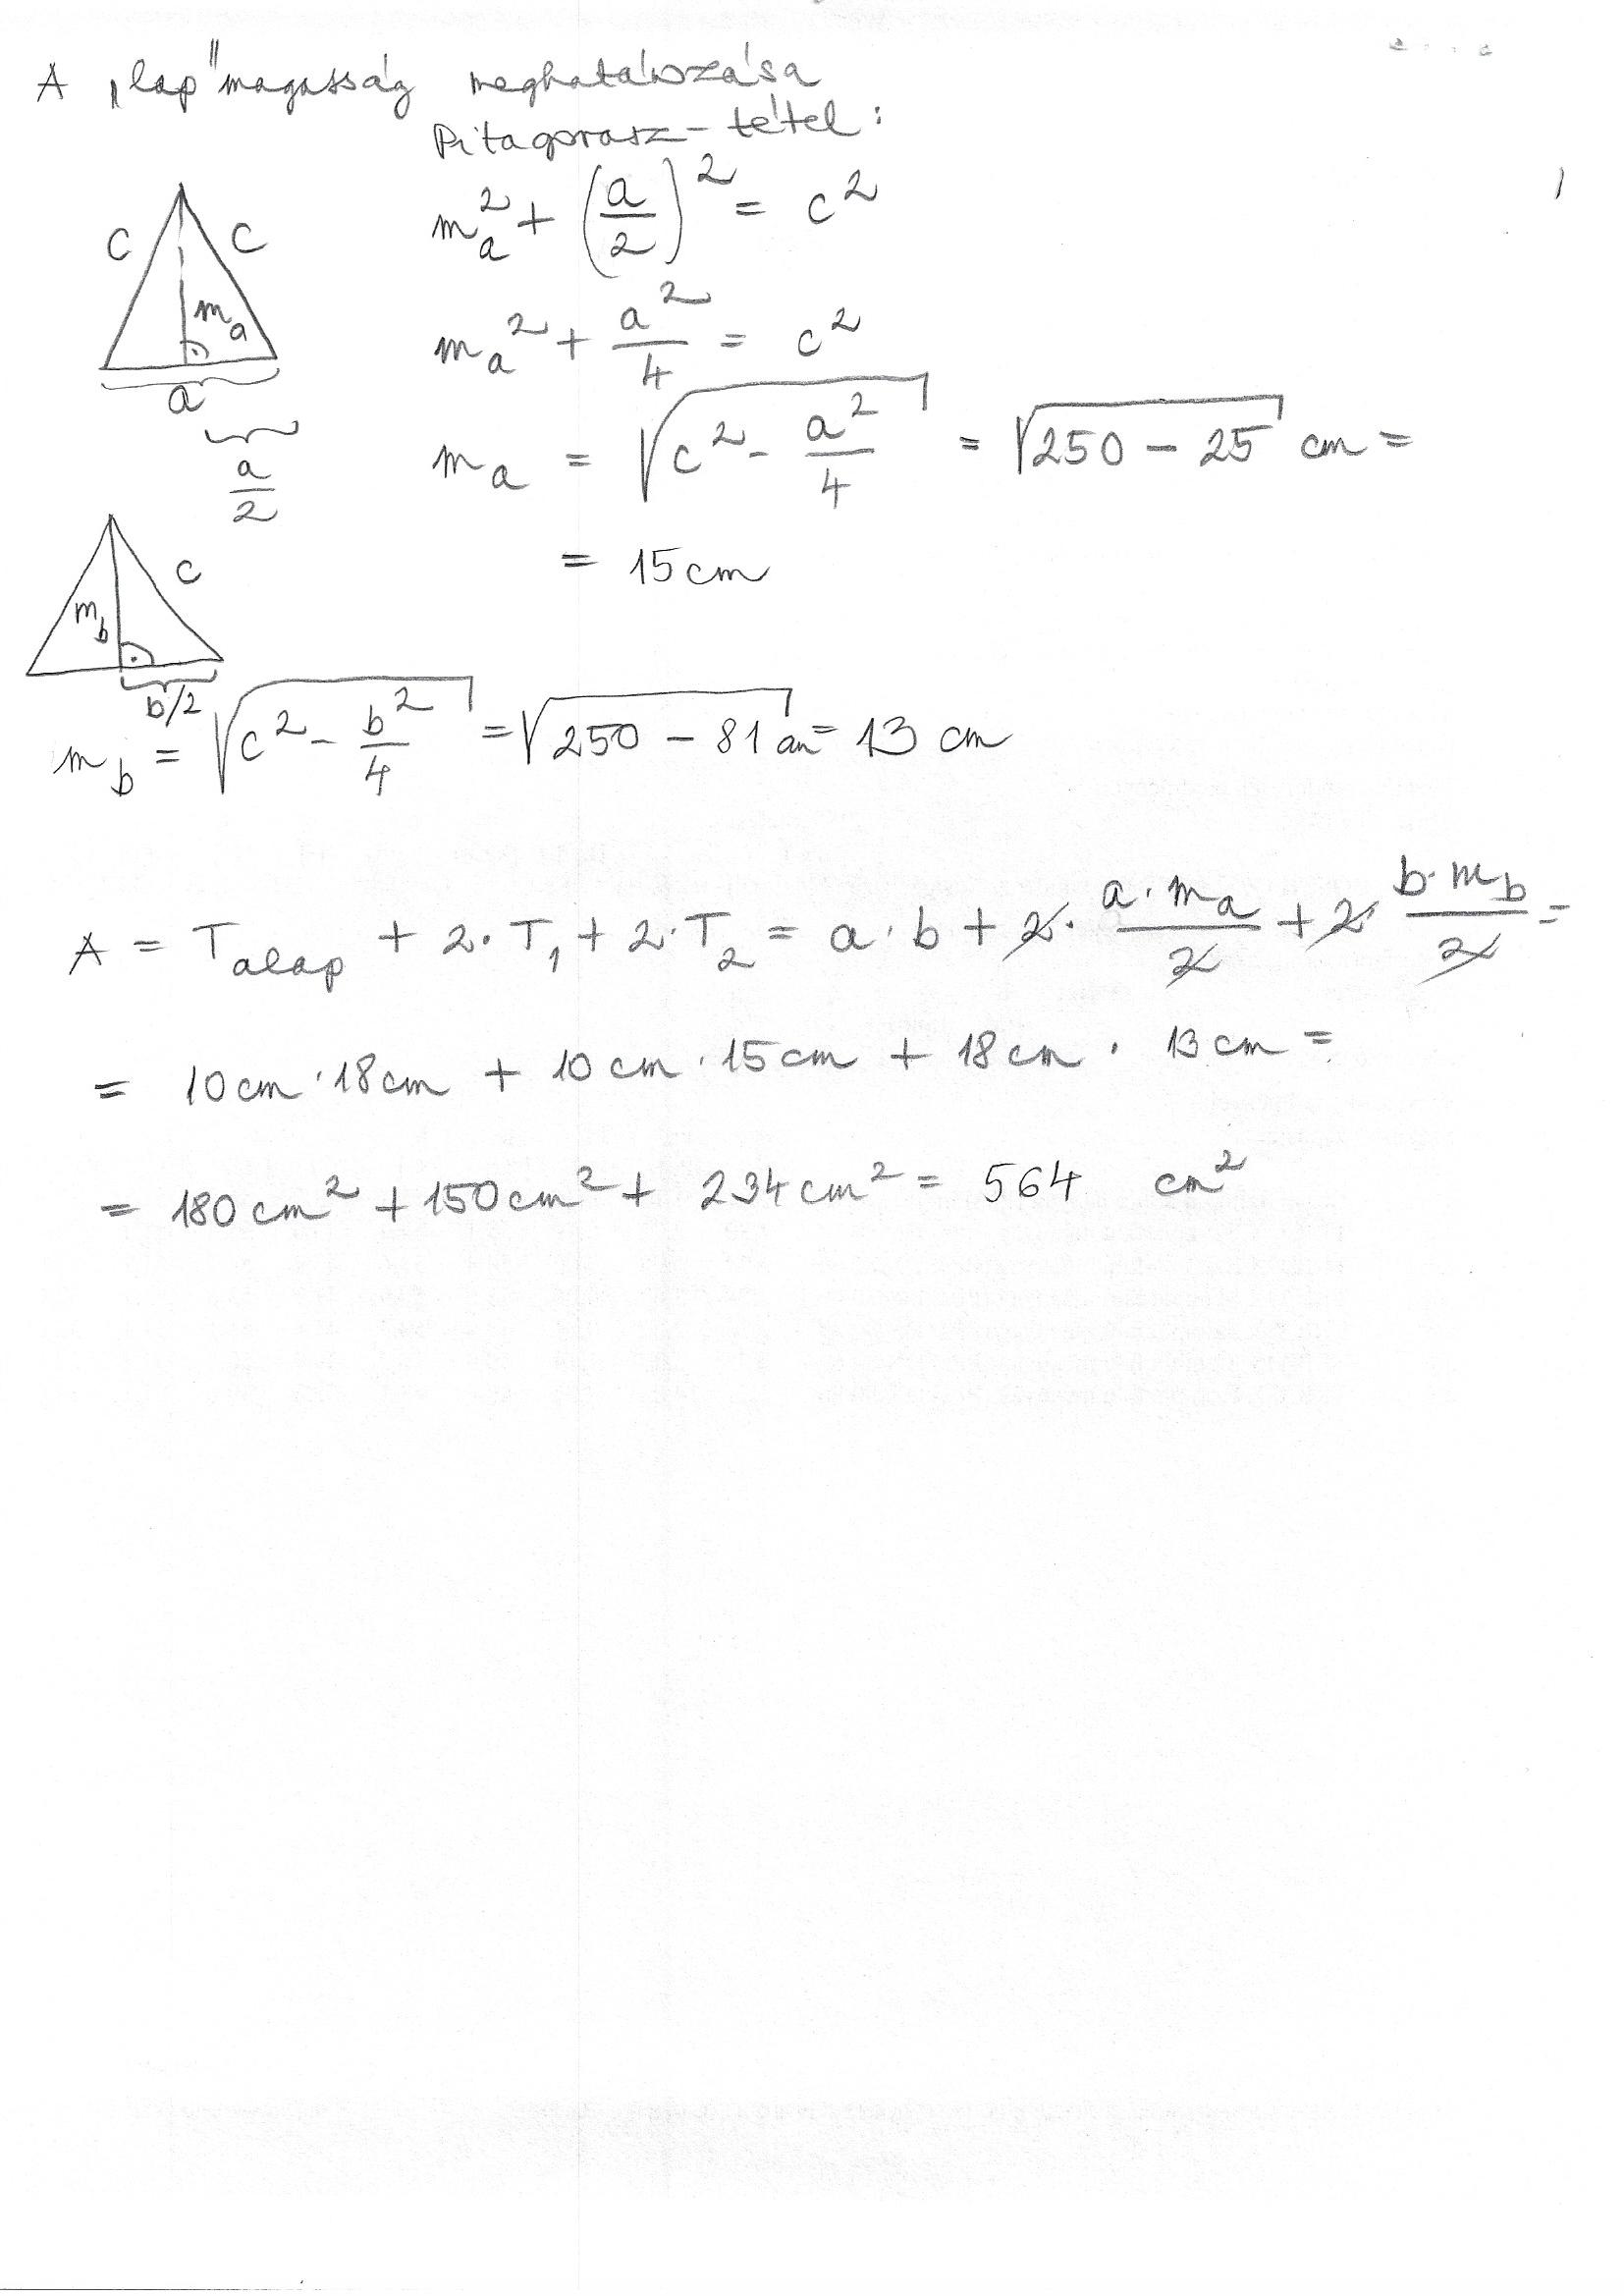 A „lap" magasság meghatározása
Pitagorasz-tétel:
m_a^2 + (a/2)^2 = c^2
c c m_a a a/2
m_a^2 + a^2/4 = c^2
m_a = √(c^2 - a^2/4) = √(250 - 25) cm =
= 15 cm
c m_b b/2
m_b = √(c^2 - b^2/4) = √(250 - 81) cm = 13 cm
A = T_alap + 2·T_1 + 2·T_2 = a·b + 2·(a·m_a)/2 + 2·(b·m_b)/2 =
= 10cm·18cm + 10cm·15cm + 18cm·13cm =
= 180cm^2 + 150cm^2 + 234cm^2 = 564 cm^2